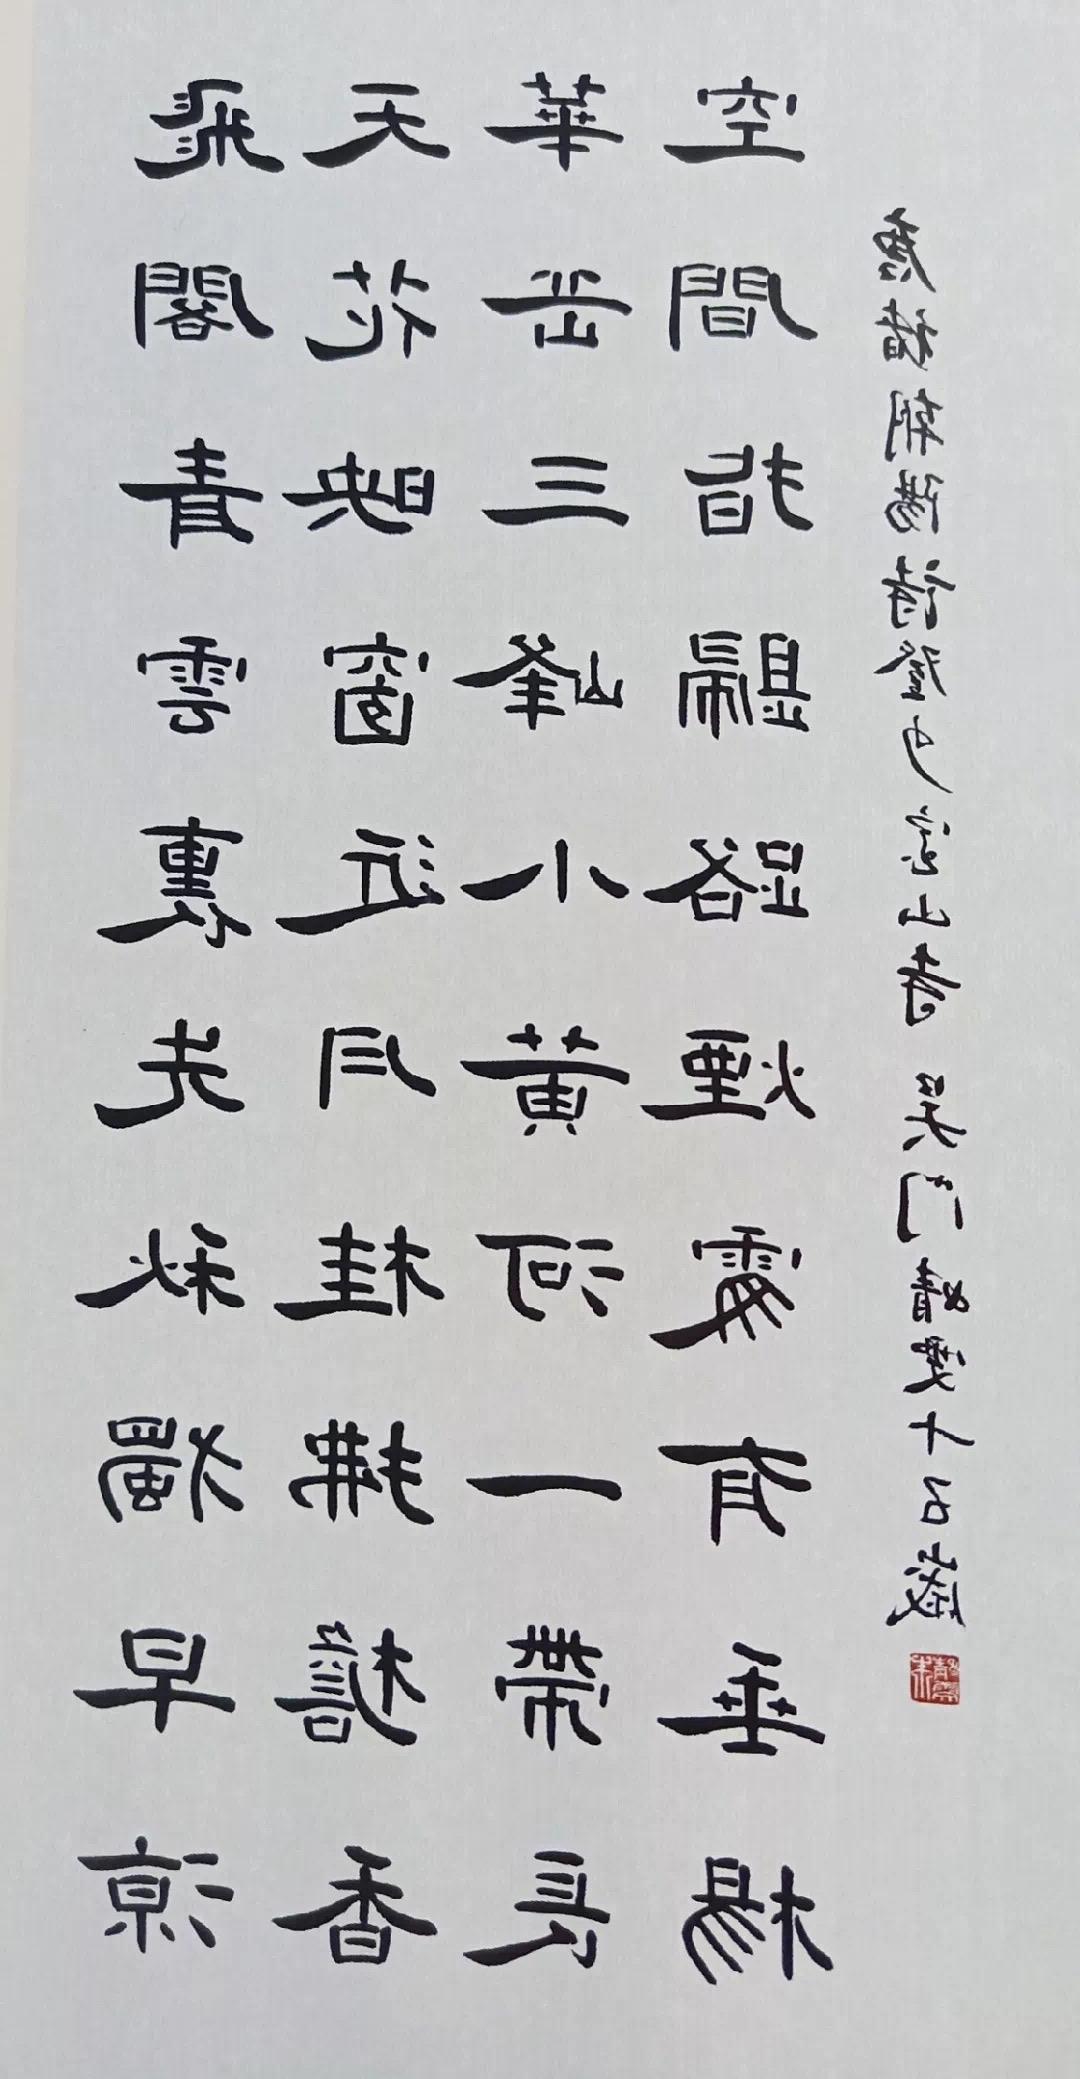 飛閣青雲裏先秋獨早涼
天花映窗近月桂拂檐香
華岳三峰小黃河一帶長
空間指歸路煙處有垂楊
唐褚朝陽詩登少室山寺 吳門婧雯十五歲